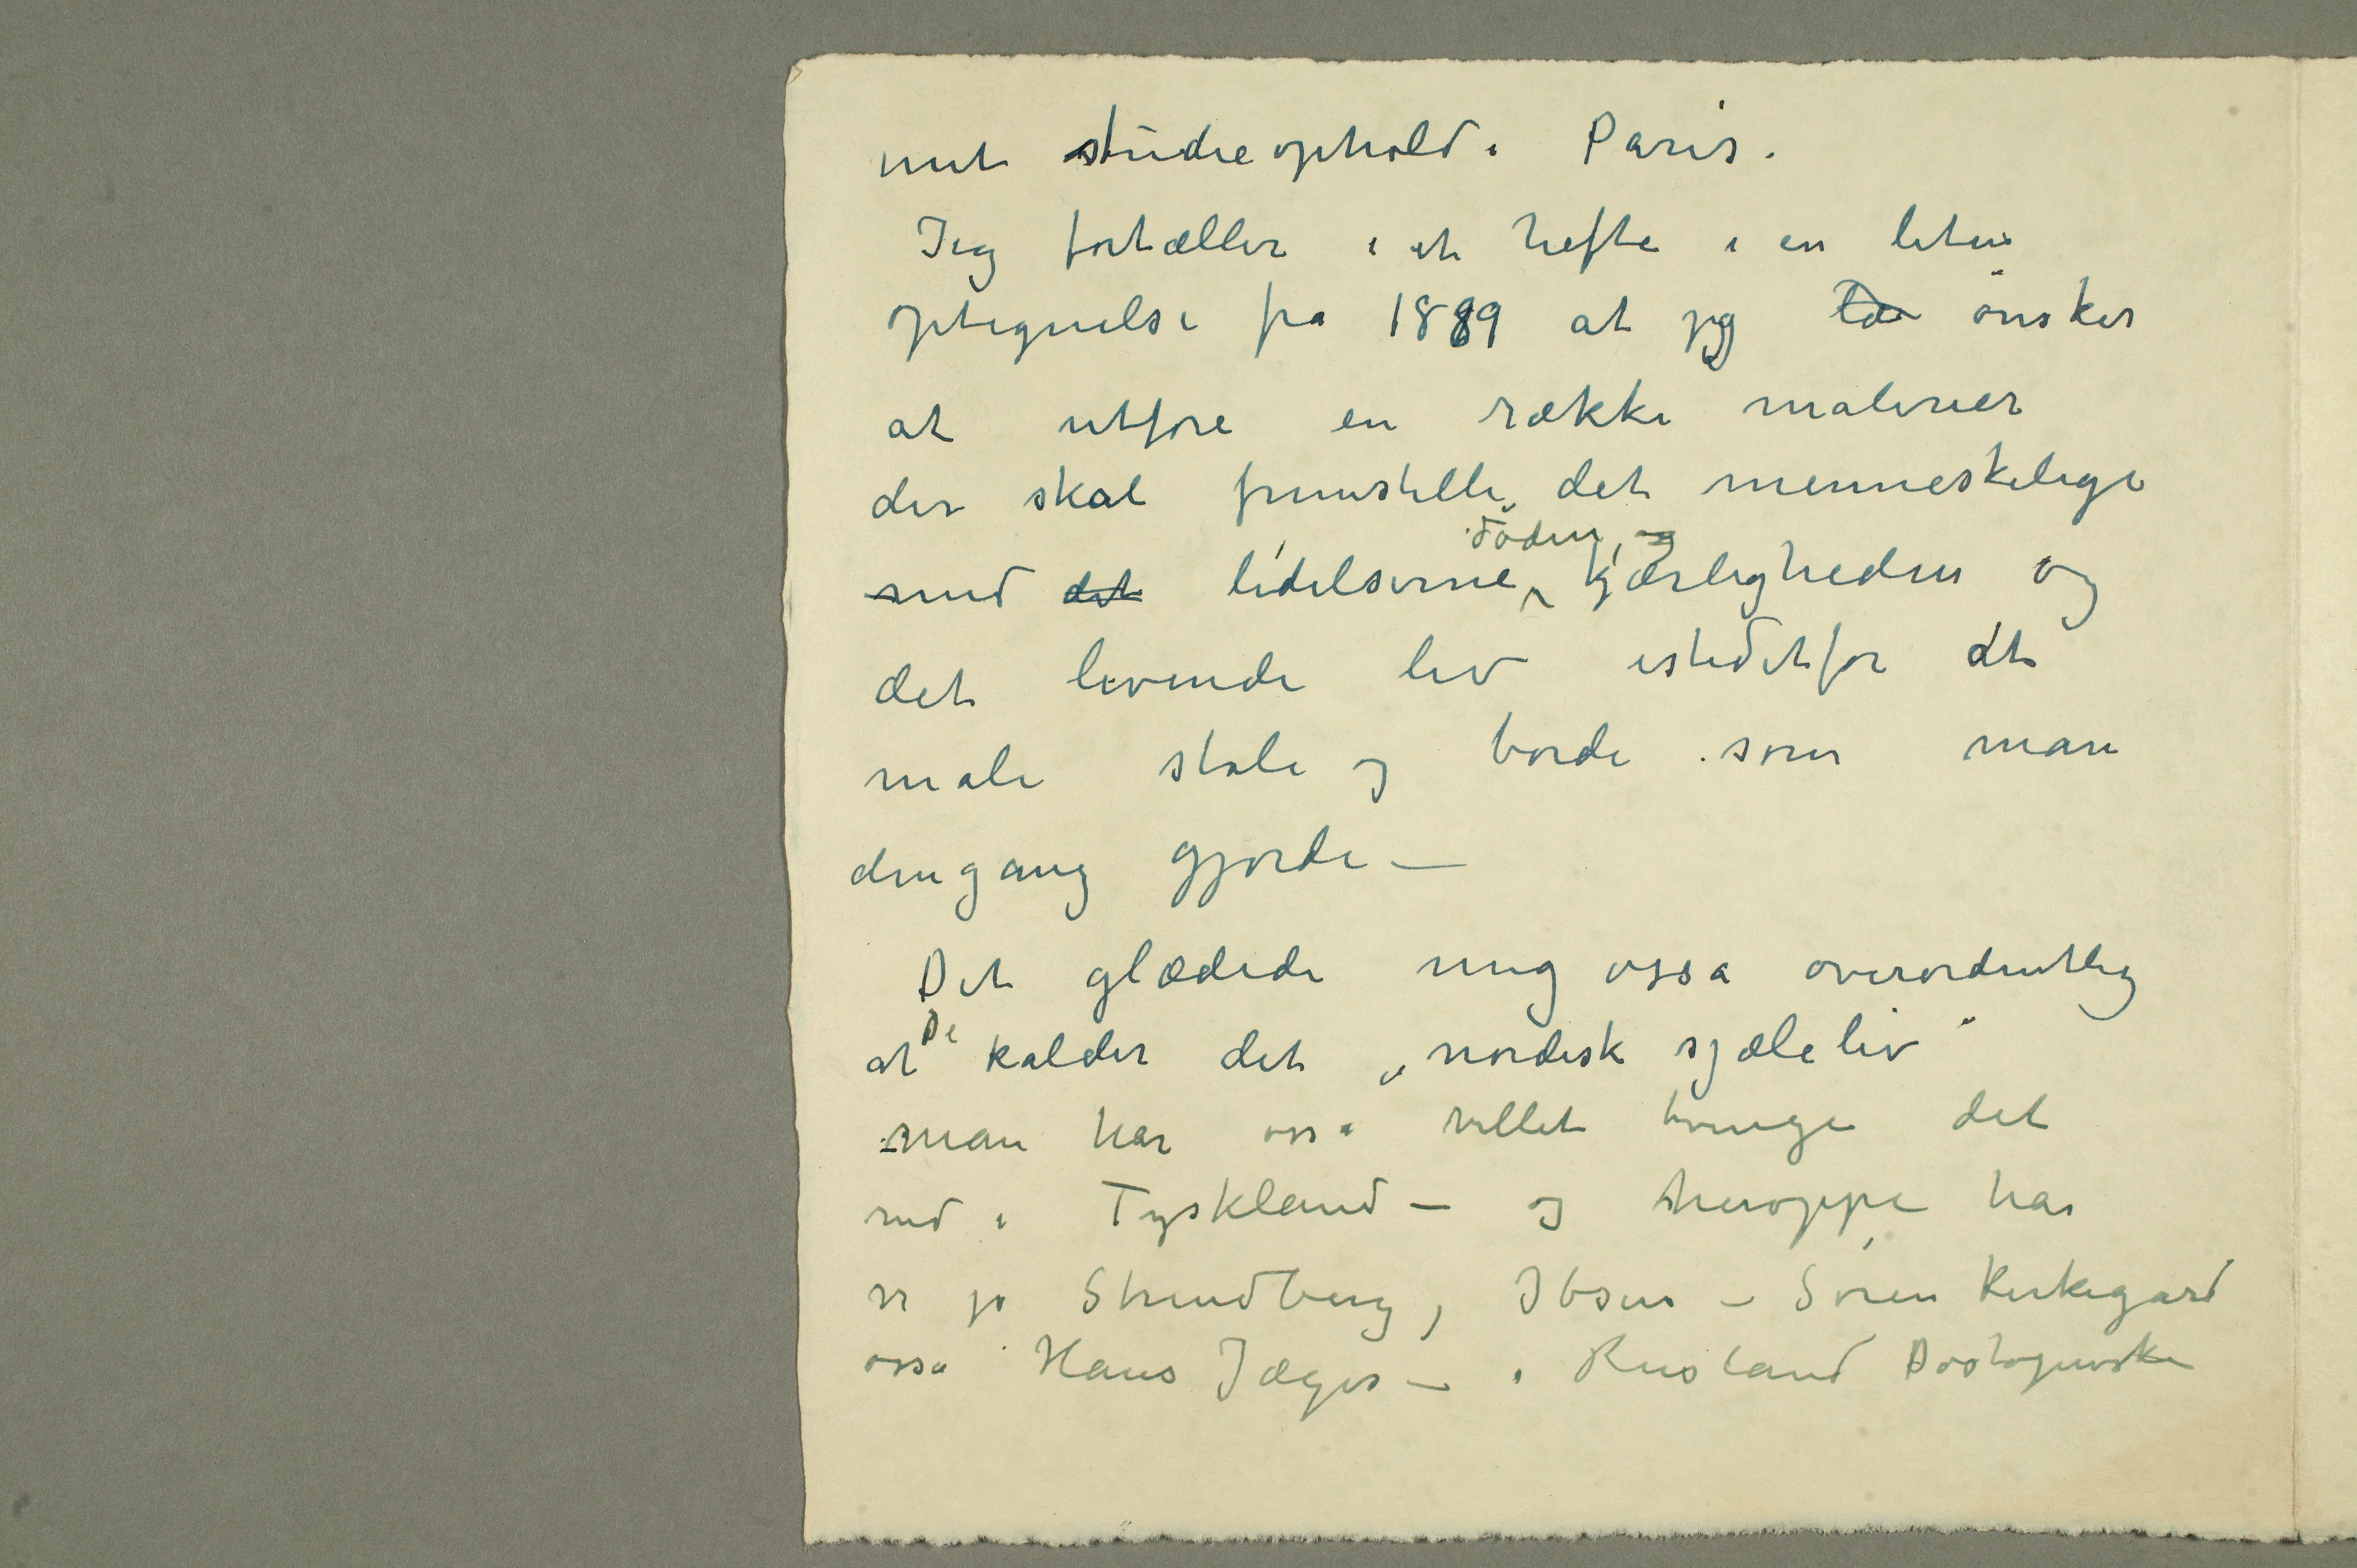 mit studieophold i Paris.
Jeg fortæller i et hefte i en liten
optegnelse fra 1889 at jeg læ ønsker
at utføre en række malerier
der skal fremstille det menneskelige
døden, og
med det lidelserne, kjærligheden og
det levende liv istedetfor at
male stole og borde som man
dengang gjorde –
Det glædede mig osså overordentlig
De
at kalder det „nordisk sjæleliv"
man har osså villet tvinge det
ned i Tyskland – og heroppe har
vi jo Strindberg, Ibsen – Søren Kirkegård
osså Hans Jæger – i Rusland Dostojewski